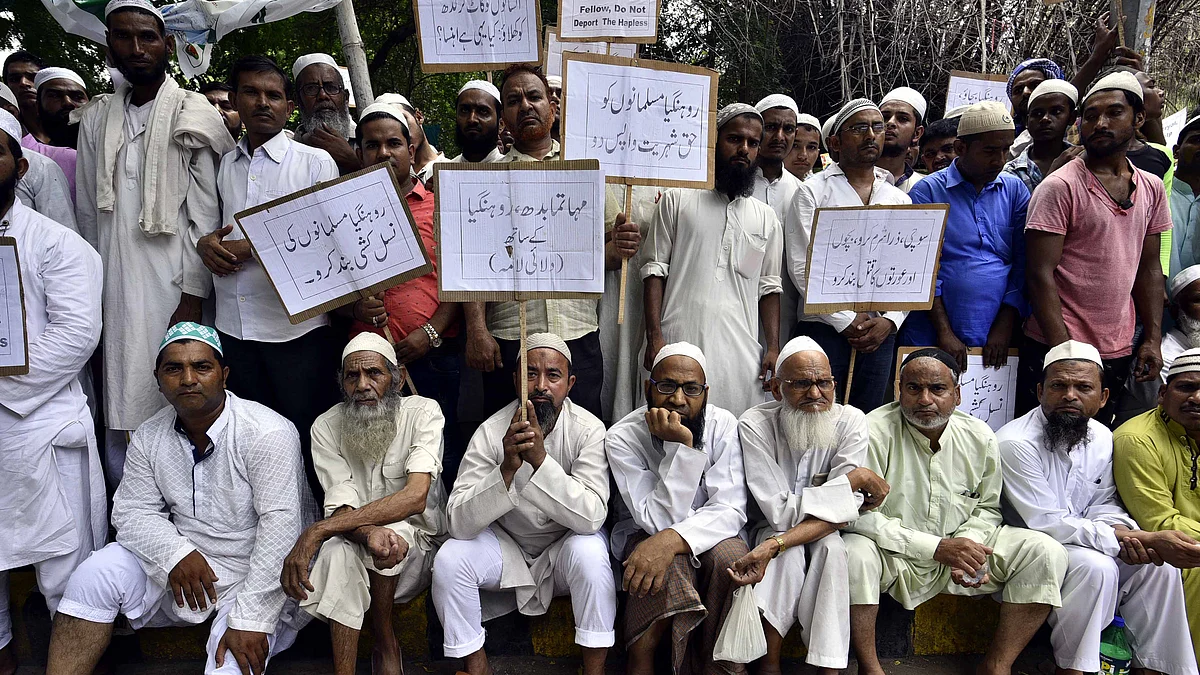 انسانوں کو کاٹ کر بدھ
کو کھلاؤ: کیا یہی ہے اہنسا؟
Fellow, Do Not
Deport The Hapless
روہنگیا مسلمانوں کو
حق شہریت واپس دو
روہنگیا مسلمانوں کی
نسل کشی بند کرو۔
مہاتما بدھ، روہنگیا
کے ساتھ
(دلائی لامہ)
سوچی، ذرا شرم کرو، بچوں
اور عورتوں کا قتل بند کرو
روہنگیا
نسل